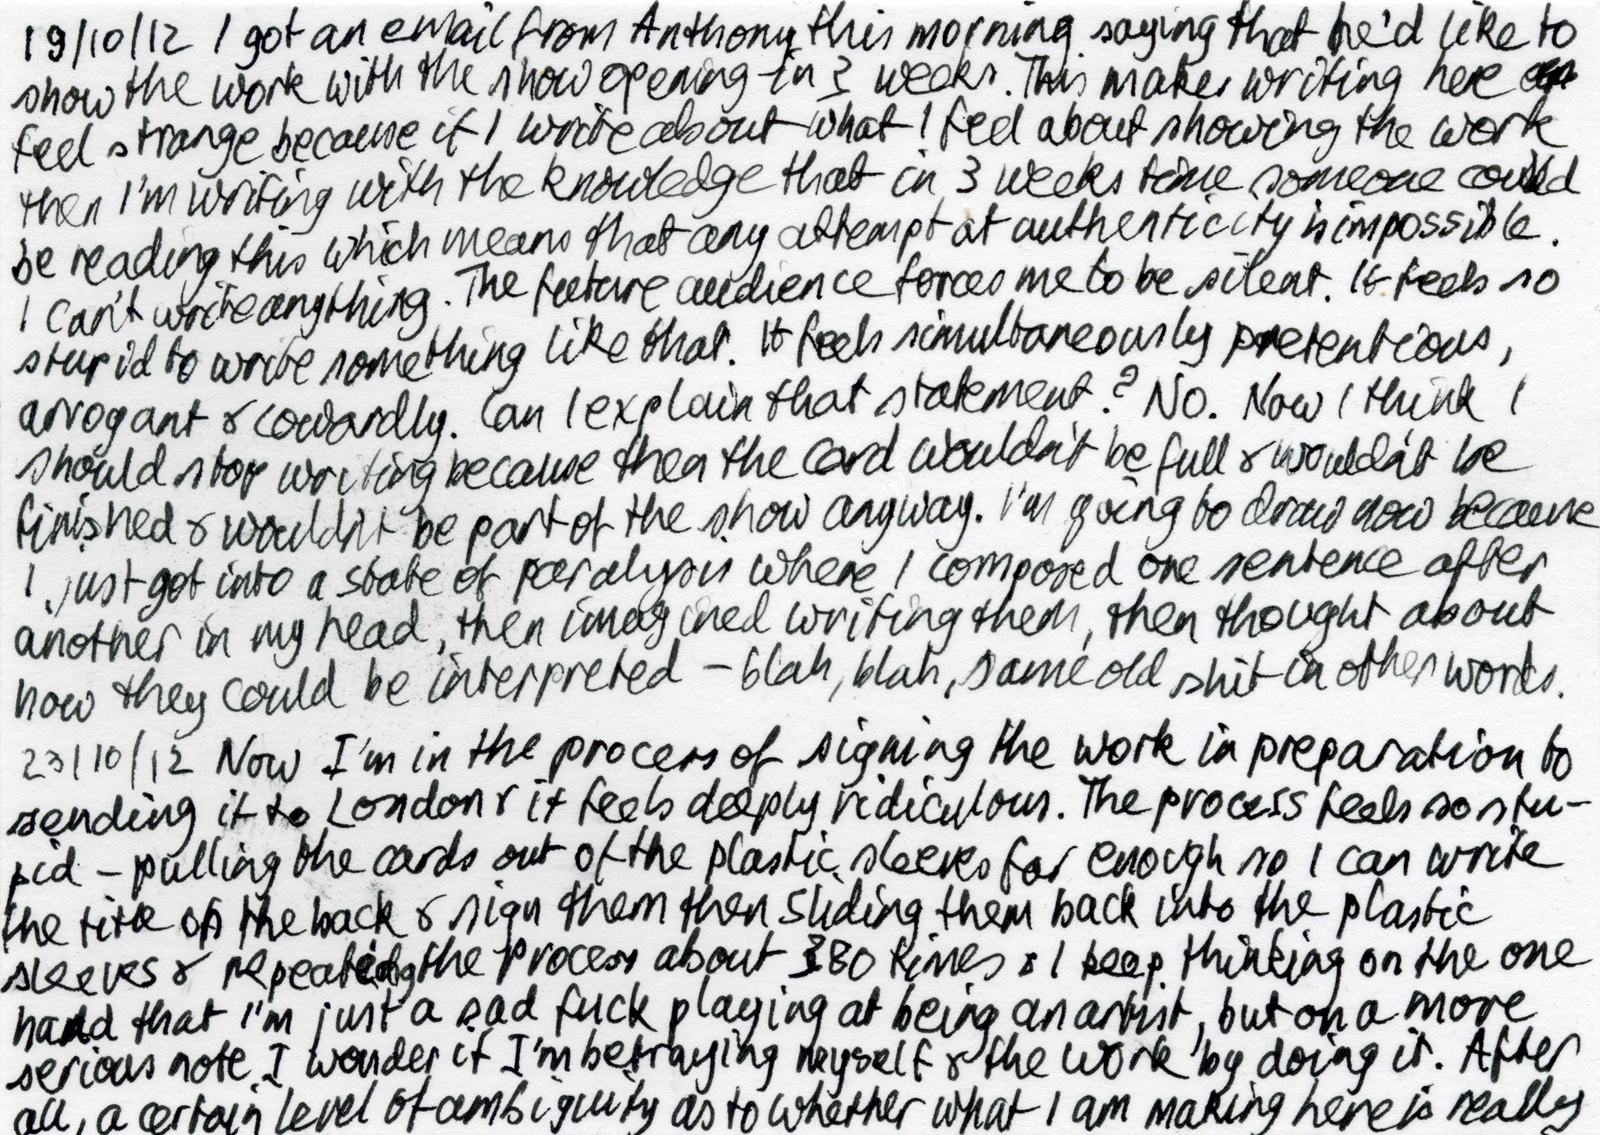 19/10/12 I got an email from Anthony this morning saying that he'd like to
show the work with the show opening in 3 weeks. This makes writing here
feel strange because if I write about what I feel about showing the work
then I'm writing with the knowledge that in 3 weeks time someone could
be reading this which means that any attempt at authenticity is impossible.
I can't write anything. The future audience forces me to be silent. It feels so
stupid to write something like that. It feels simultaneously pretentious,
arrogant & cowardly. Can I explain that statement? No. Now I think I
should stop writing because then the card wouldn't be full & wouldn't be
finished & wouldn't be part of the show anyway. I'm going to draw now because
I just got into a state of paralysis where I composed one sentence after
another in my head, then imagined writing them, then thought about
how they could be interpreted – blah, blah, same old shit in other words.
23/10/12 Now I'm in the process of signing the work in preparation to
sending it to London & it feels deeply ridiculous. The process feels so stu-
pid – pulling the cards out of the plastic sleeves far enough so I can write
the title on the back & sign them then sliding them back into the plastic
sleeves & repeating the process about 380 times & I keep thinking on the one
hand that I'm just a sad fuck playing at being an artist, but on a more
serious note I wonder if I'm betraying myself & the work by doing it. After
all, a certain level of ambiguity as to whether what I am making here is really